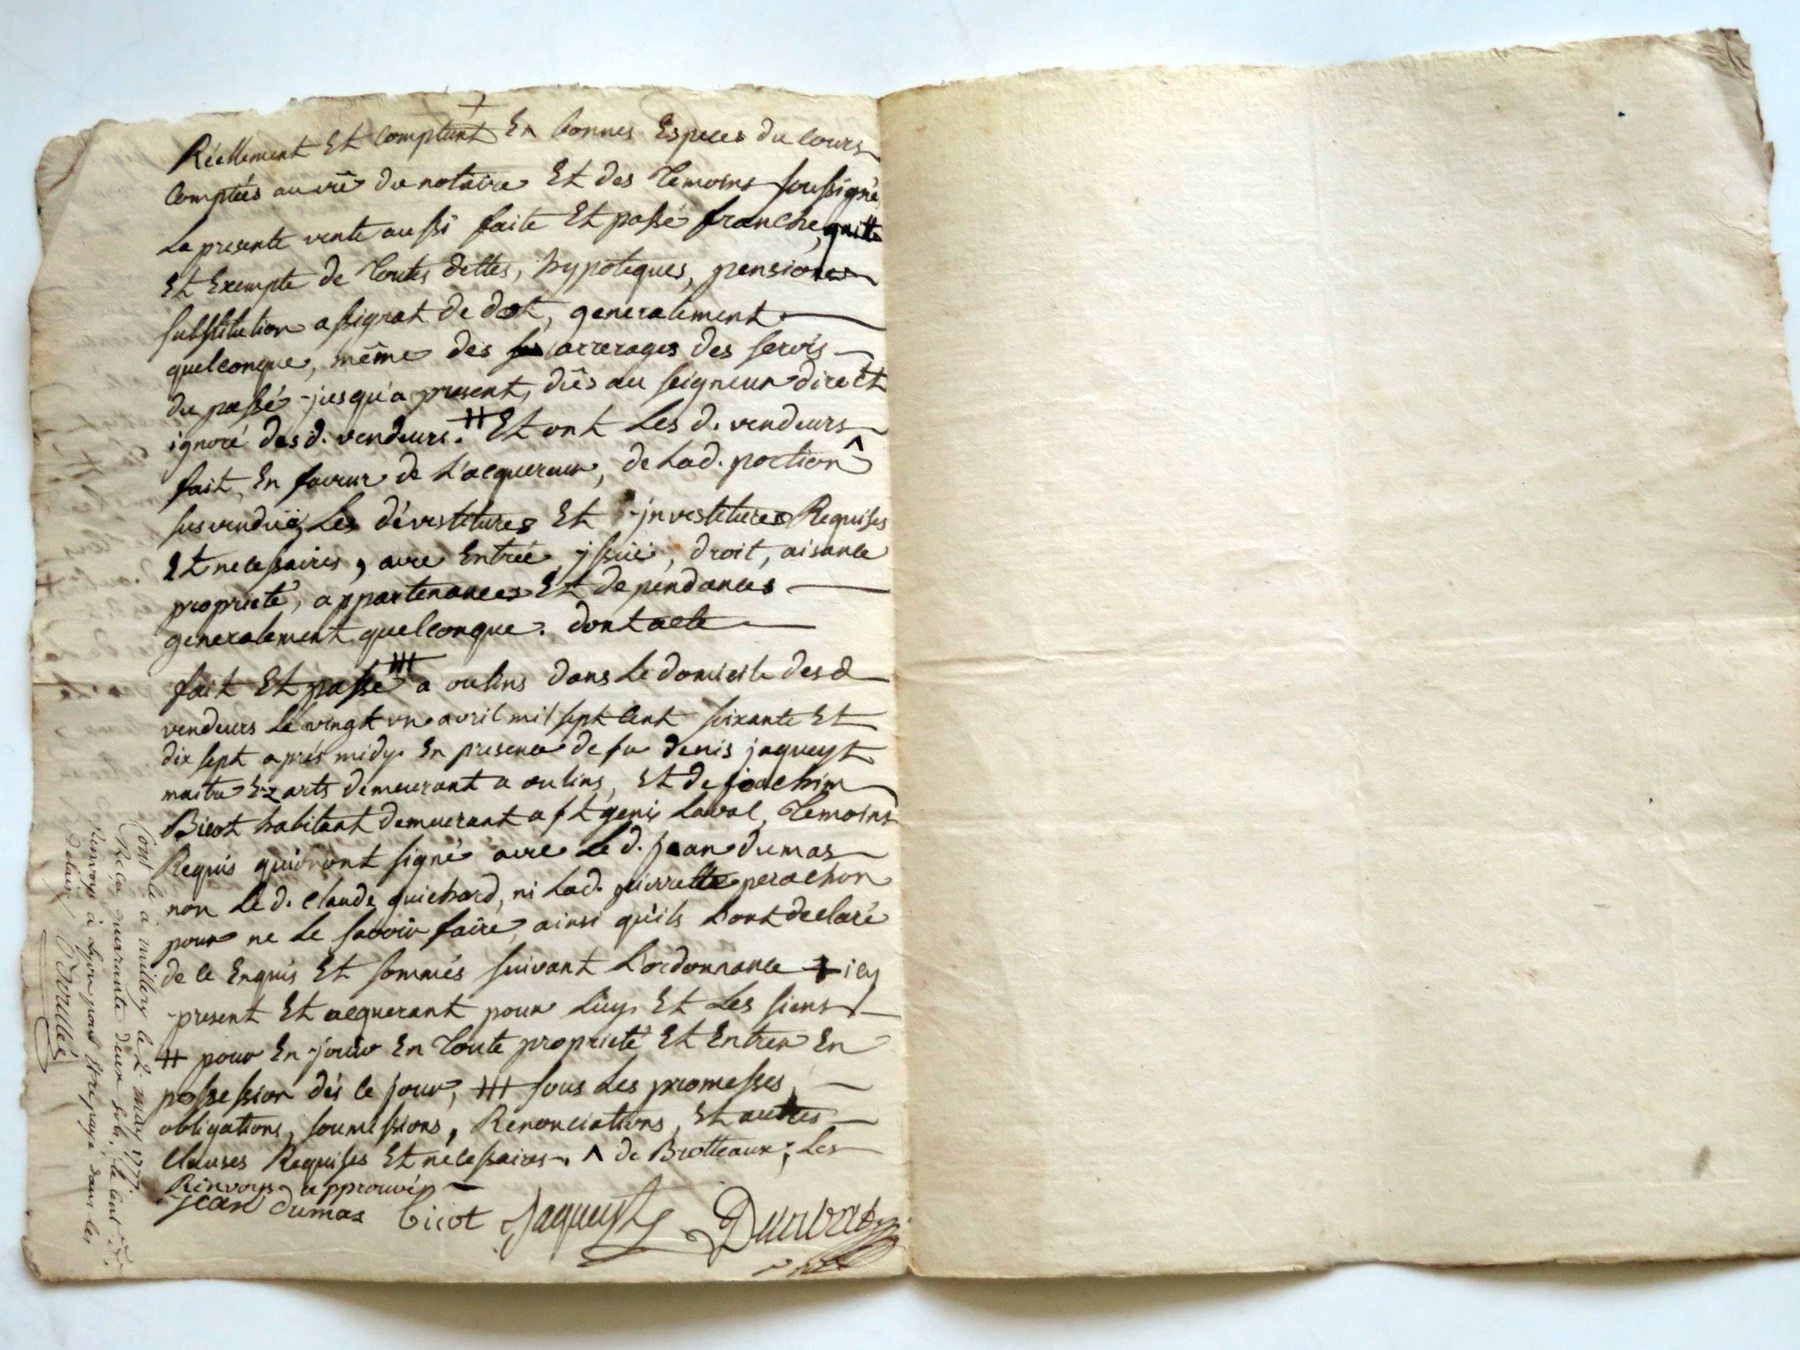 Réellement Et Comptant En bonnes Especes du Cours
Comptées au vû du notaire Et des Temoins soussignés
La presente vente aussi faite Et passé franche, quitte
Et Exempte de Toutes dettes, hypoteques, pensions
substitution assignat de dot, generalement
quelconque, même des arrerages des servis
du passé jusqu'a present, dûs au seigneur direct
ignoré des d. vendeurs. # Et ont Les d. vendeurs
fait, En faveur de L'acquereur, de Lad. portion ^
susvenduë, Les dévestitures Et jnvestitures Requises
Et necessaires, avec Entrée jssuë, droit, aisance
proprieté, appartenances Et dependances
generalement quelconque. dont acte
fait Et passé a oulins dans Le domicile des d.
vendeurs Le vingt un avril mil sept Cent soixante Et
dix sept après midy. En presence de sr denis jaqueyt
maitre Ez arts demeurant a oulins, Et de joachim
Bicot habitant demeurant a st genis Laval, Temoins
Requis qui ont signé avec Le d. jean dumas
non Le d. Claude guichard, ni Lad. pierrette perachon
pour ne Le savoir faire, ainsi qu'ils L'ont declaré
de ce Enquis Et sommés suivant L'ordonnance + icy
present Et acquerant pour Luy Et Les siens
# pour En jouir En Toute proprieté Et Entrer En
possession dés ce jour, sous Les promesses,
obligations, soumissions, Renonciations, Et autres
Clauses Requises Et nécessaires. ^ de Brotteaux; Les
Renvoys approuvés
jean dumas bicot Jaqueyt
Conlé à millery le 2 may 1777.
Reçu quarante deux sols. le cent d.
renvoyé à Lyon pour être payé dans les
delais